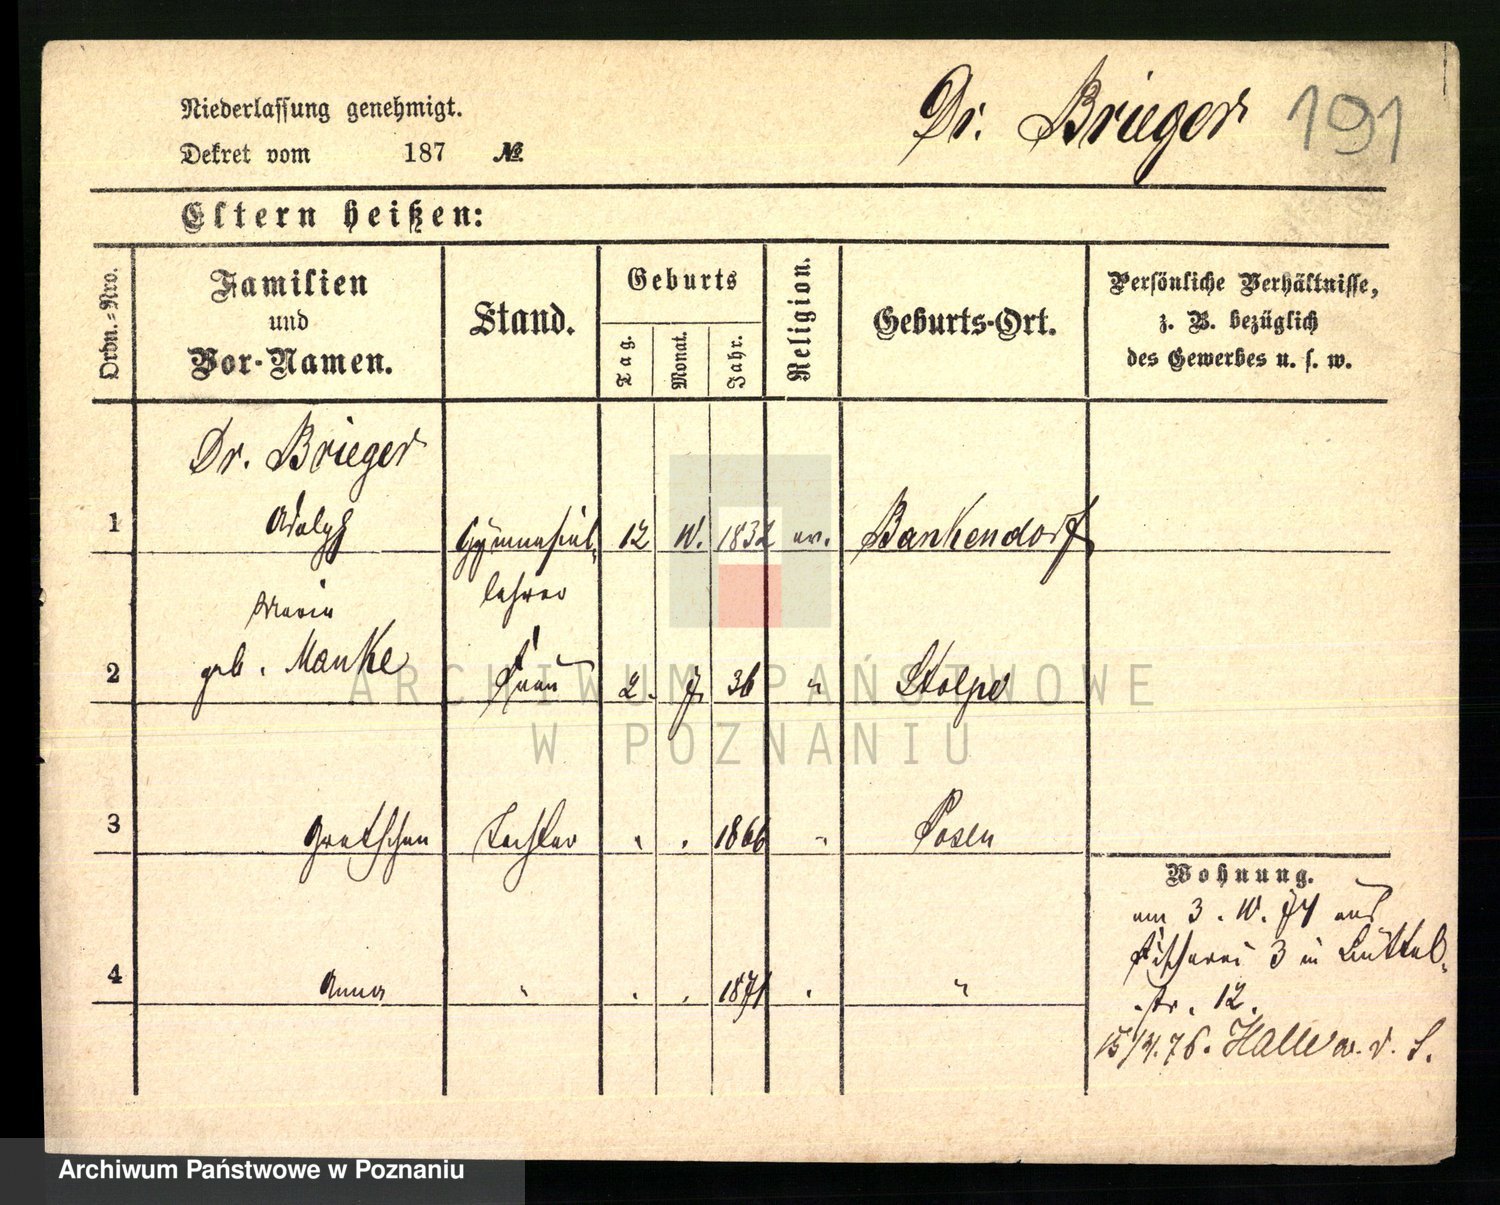 Dr. Brieger 191
Niederlassung genehmigt.
Dekret vom 187 №
Eltern heißen:
Ordn.-Nro.
Familien und Vor-Namen.
Stand.
Geburts
Tag. Monat. Jahr.
Religion.
Geburts-Ort.
Persönliche Verhältnisse,
z. B. bezüglich
des Gewerbes u. s. w.
Dr. Brieger
1 Adolph Gymnasial- 12 1832 ev. Bankendorf
lehrer
Marie
2 geb. Manke Frau 2. 7. 36 " Stolpe
3 Gretchen Tochter . . 1866 " Posen
4 Anna " . . 1871 . "
Wohnung.
am 3. 74 aus
Fischerei 3 in Büttel-
str. 12.
76. Halle a. d. S.
ARCHIWUM PAŃSTWOWE
W POZNANIU
Archiwum Państwowe w Poznaniu